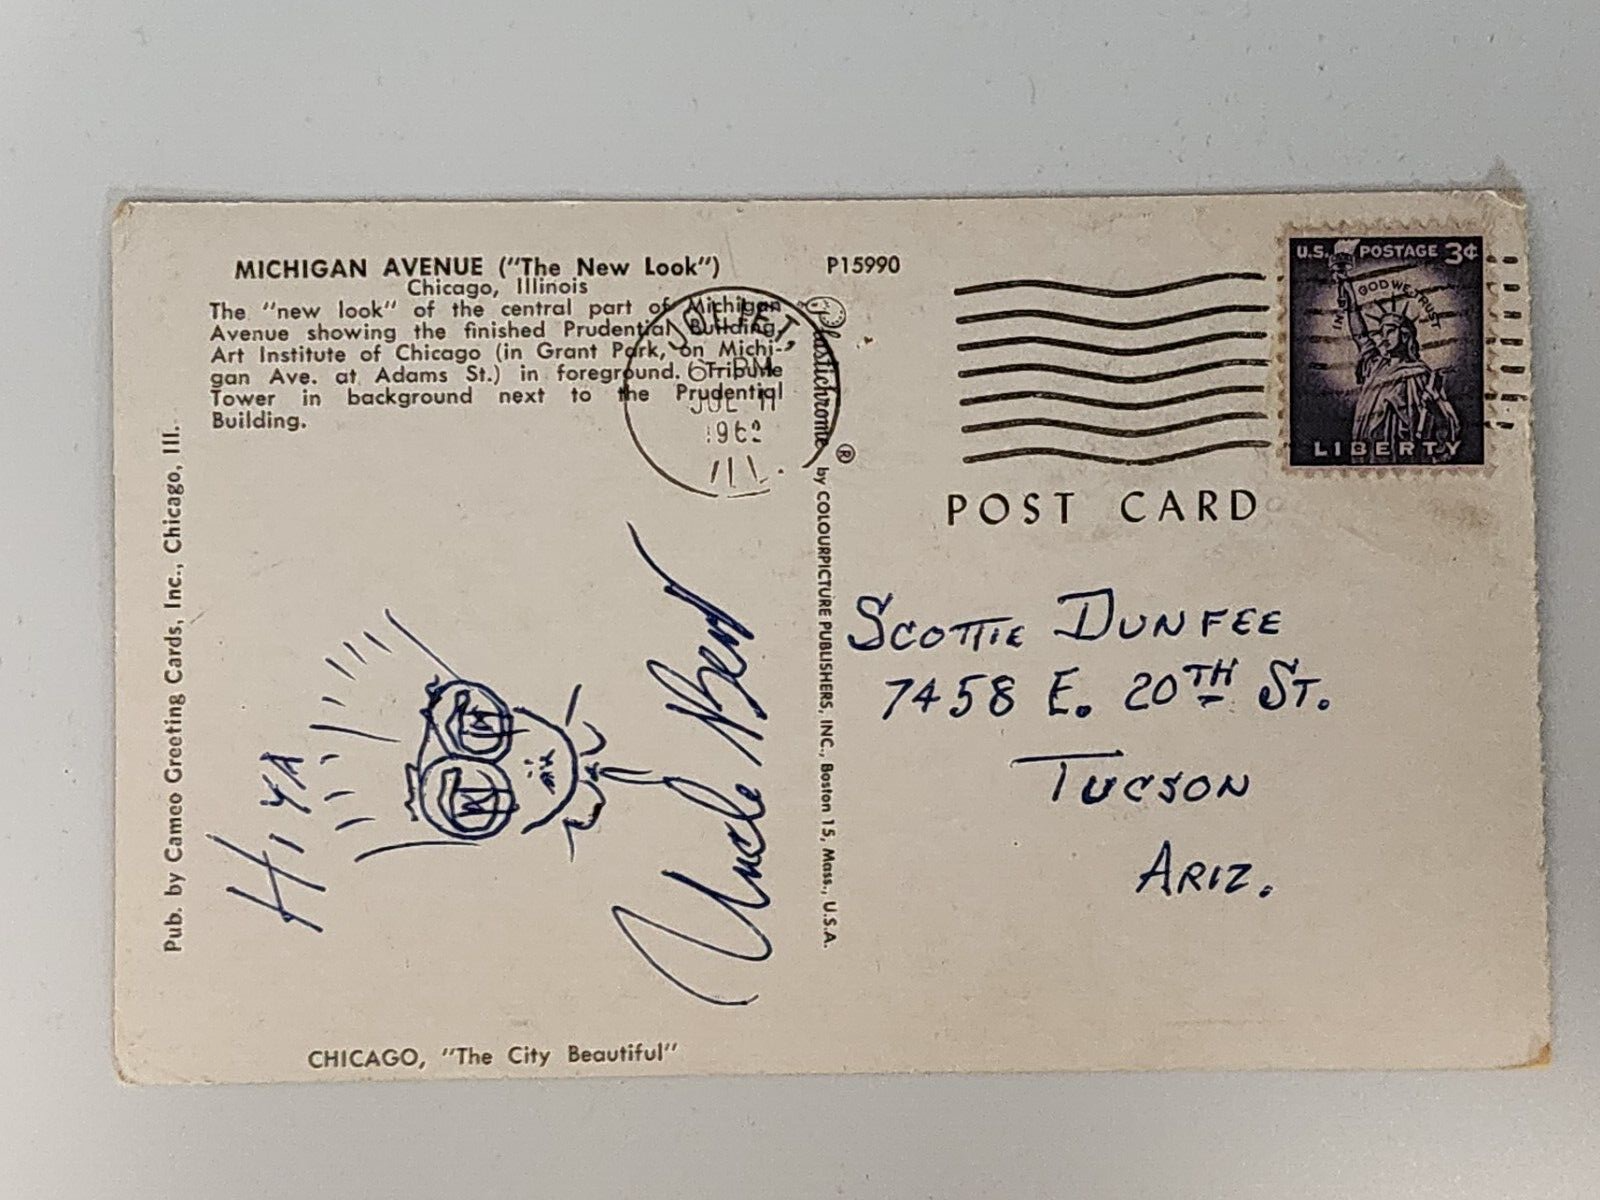 MICHIGAN AVENUE ("The New Look")
Chicago, Illinois
The "new look" of the central part of Michigan
Avenue showing the finished Prudential Building,
Art Institute of Chicago (in Grant Park, on Michi-
gan Ave. at Adams St.) in foreground. (Tribune
Tower in background next to the Prudential
Building.
P15990
JOLIET,
6 PM
JUL 11
1962
ILL.
U.S. POSTAGE 3¢
IN GOD WE TRUST
LIBERTY
POST CARD
Pub. by Cameo Greeting Cards, Inc., Chicago, Ill.
HIYA
Uncle Bert
Plastichrome ® by COLOURPICTURE PUBLISHERS, INC., Boston 15, Mass., U.S.A.
SCOTTIE DUNFEE
7458 E. 20TH ST.
TUCSON
ARIZ.
CHICAGO, "The City Beautiful"